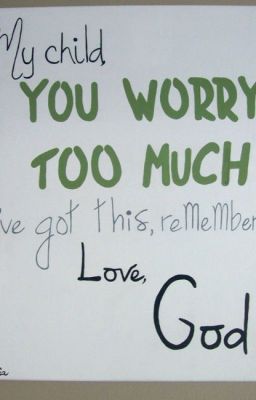 My child,
YOU WORRY
TOO MUCH
've got this, remember
Love,
God